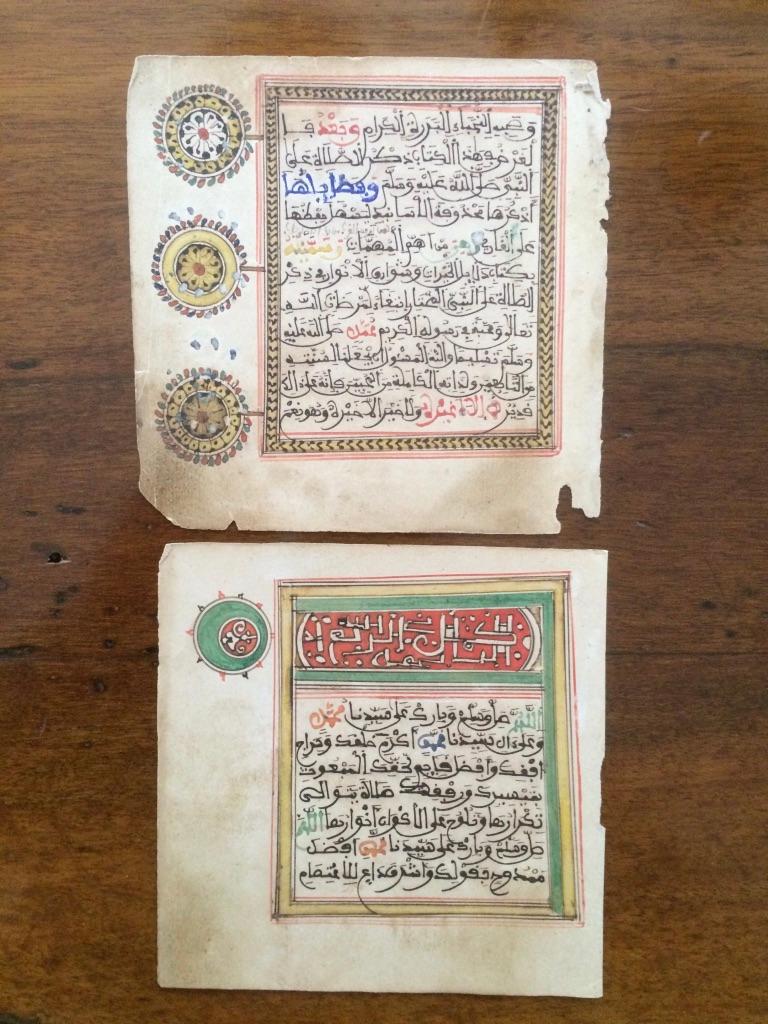 وصحبه النجباء البررة الكرام وبعد فا
لغرض في هذا الكتاب ذكر الصلاة على
النبي صلى الله عليه وسلم وفضائلها
نذكرها محذوفة الأسانيد ليسهل حفظها
على القارئ وهي من أهم المهمات وسميته
بكتاب دلائل الخيرات وشوارق الأنوار في ذكر
الصلاة على النبي المختار ابتغاء لمرضات الله
تعالى ومحبة في رسوله الكريم محمد صلى الله عليه
وسلم تسليما والله المسئول أن يجعلنا لسنته
من التابعين ولذاته الكاملة من المحبين فإنه على ذلك
قدير لا إله غيره ولا خير إلا خيره وهو نعم
اللهم صل وسلم وبارك على سيدنا محمد
وعلى ال سيدنا محمد أكرم خلقك وسراج
أفقك وأفضل قائم بحقك المبعوث
بتيسيرك ورفقك صلاة يتوالى
تكرارها وتلوح على الأكوان أنوارها اللهم
صل وسلم وبارك على سيدنا محمد أفضل
ممدوح بقولك وأشرف داع للاعتصام